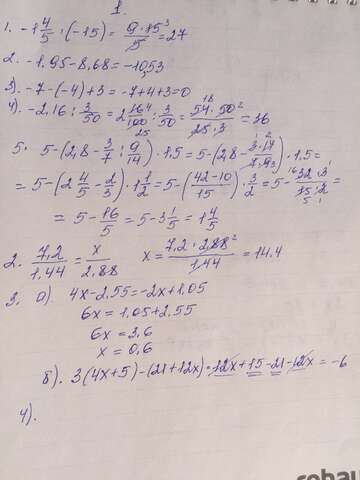 1.
1. -1 4/5 · (-15) = 9·15³/5 = 27
2. -1,95-8,68=-10,53
3) -7-(-4)+3=-7+4+3=0
4). -2,16 : 3/50 = 2 16⁴/100 25 : 3/50 = 54·50²/25·3 18 = 36
5. 5-(2,8- 3/7 : 9/14) · 1,5 = 5-(2,8- 3·14/7·9) · 1,5 =
= 5-(2 4/5 - 2/3) · 1 1/2 = 5-( 42-10/15 ) · 3/2 = 5- 32·3/15·2 =
= 5- 16/5 = 5-3 1/5 = 1 4/5
2. 7,2/1,44 = x/2,88 x= 7,2·2,88²/1,44 = 14,4
3. а). 4x-2,55=-2x+1,05
6x=1,05+2,55
6x=3,6
x=0,6
б). 3(4x+5)-(21+12x)=12x+15-21-12x=-6
4).